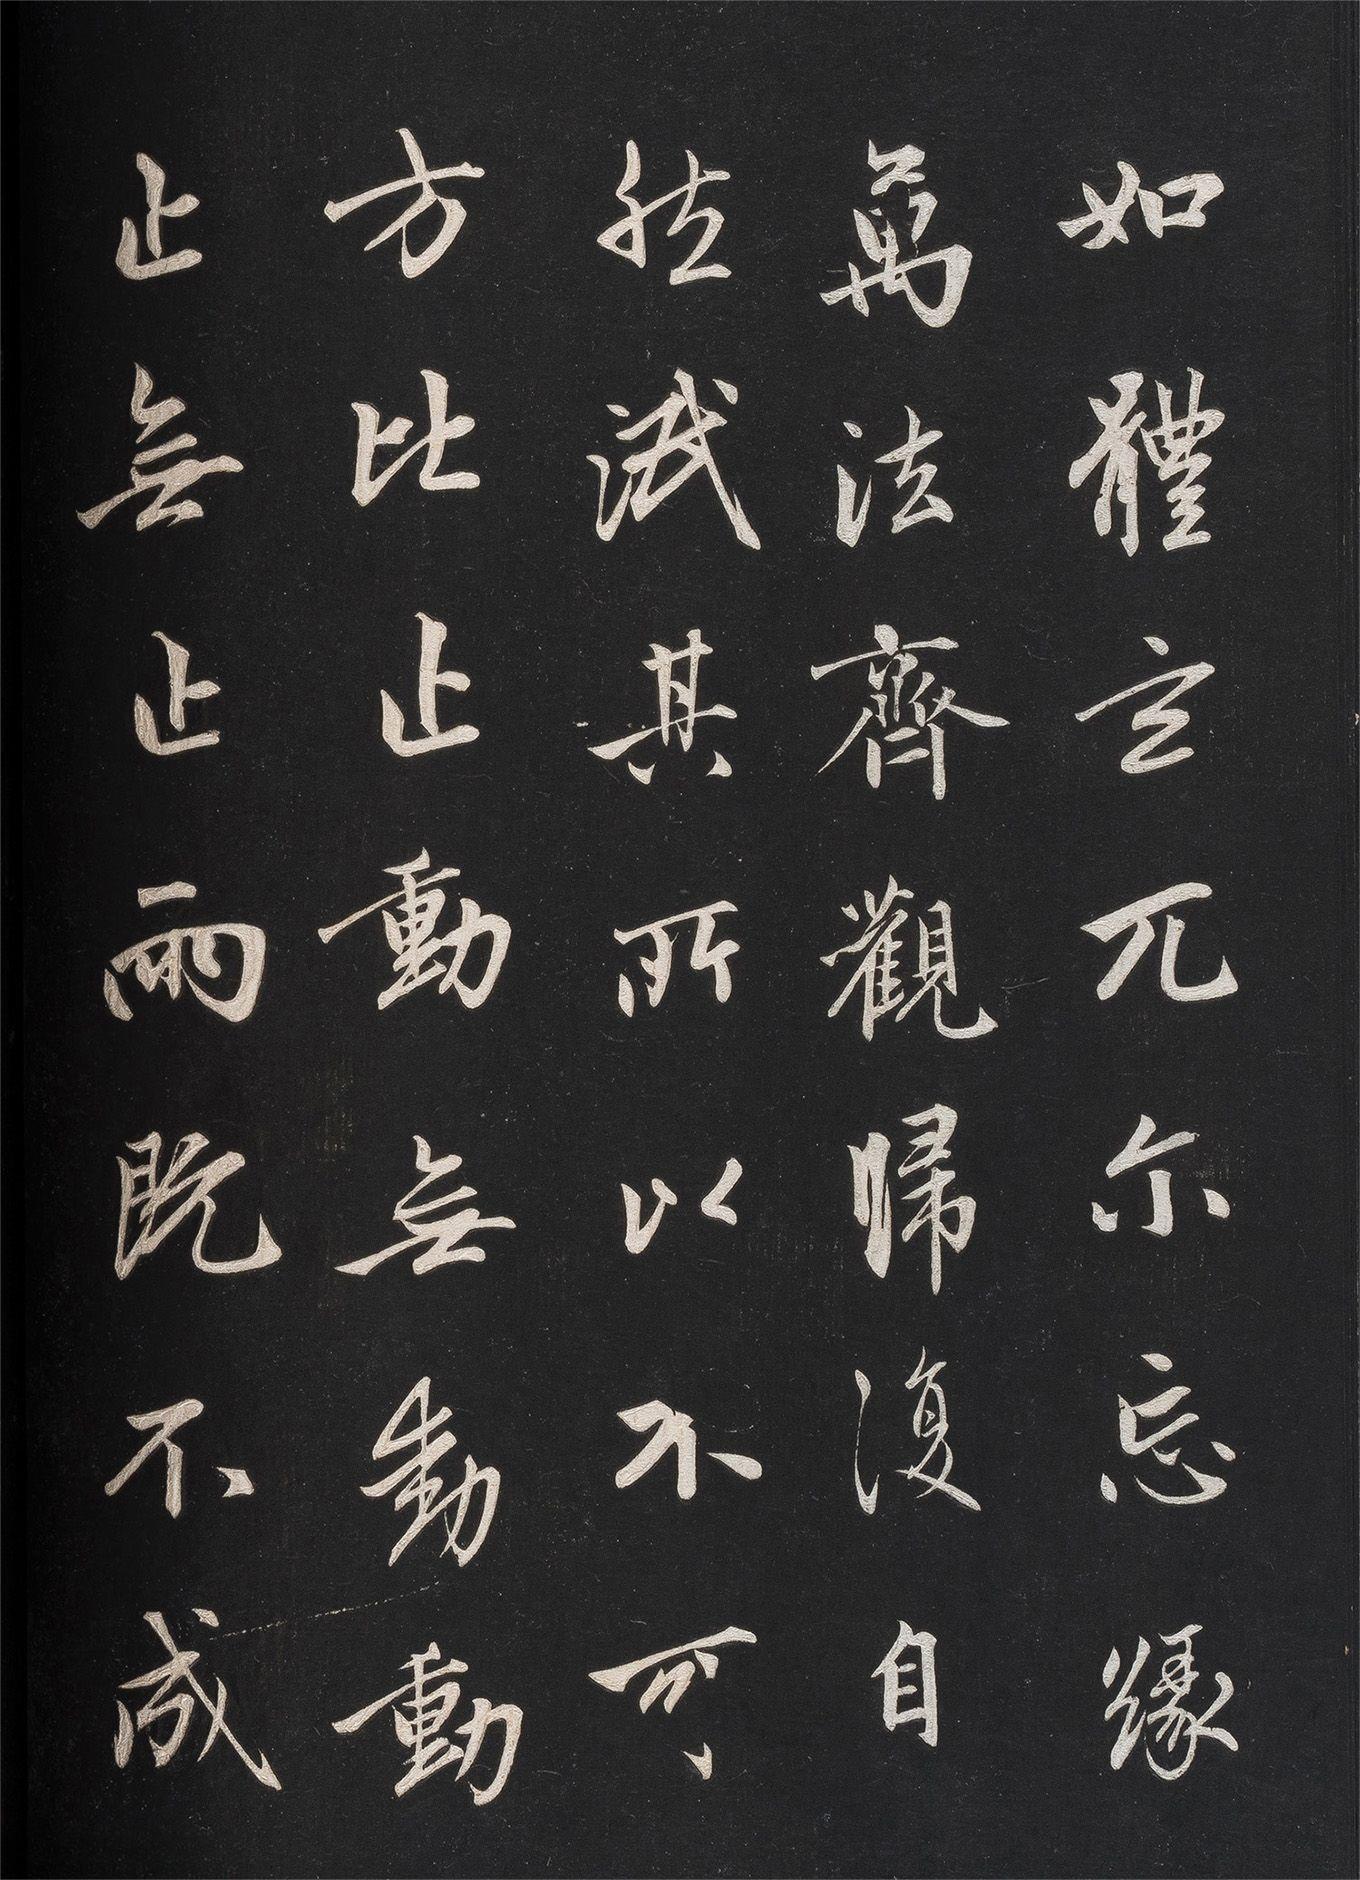 如體玄兀尒忘緣
萬法齊觀歸復自
然泯其所以不可
方比止動無動動
止無止兩既不成